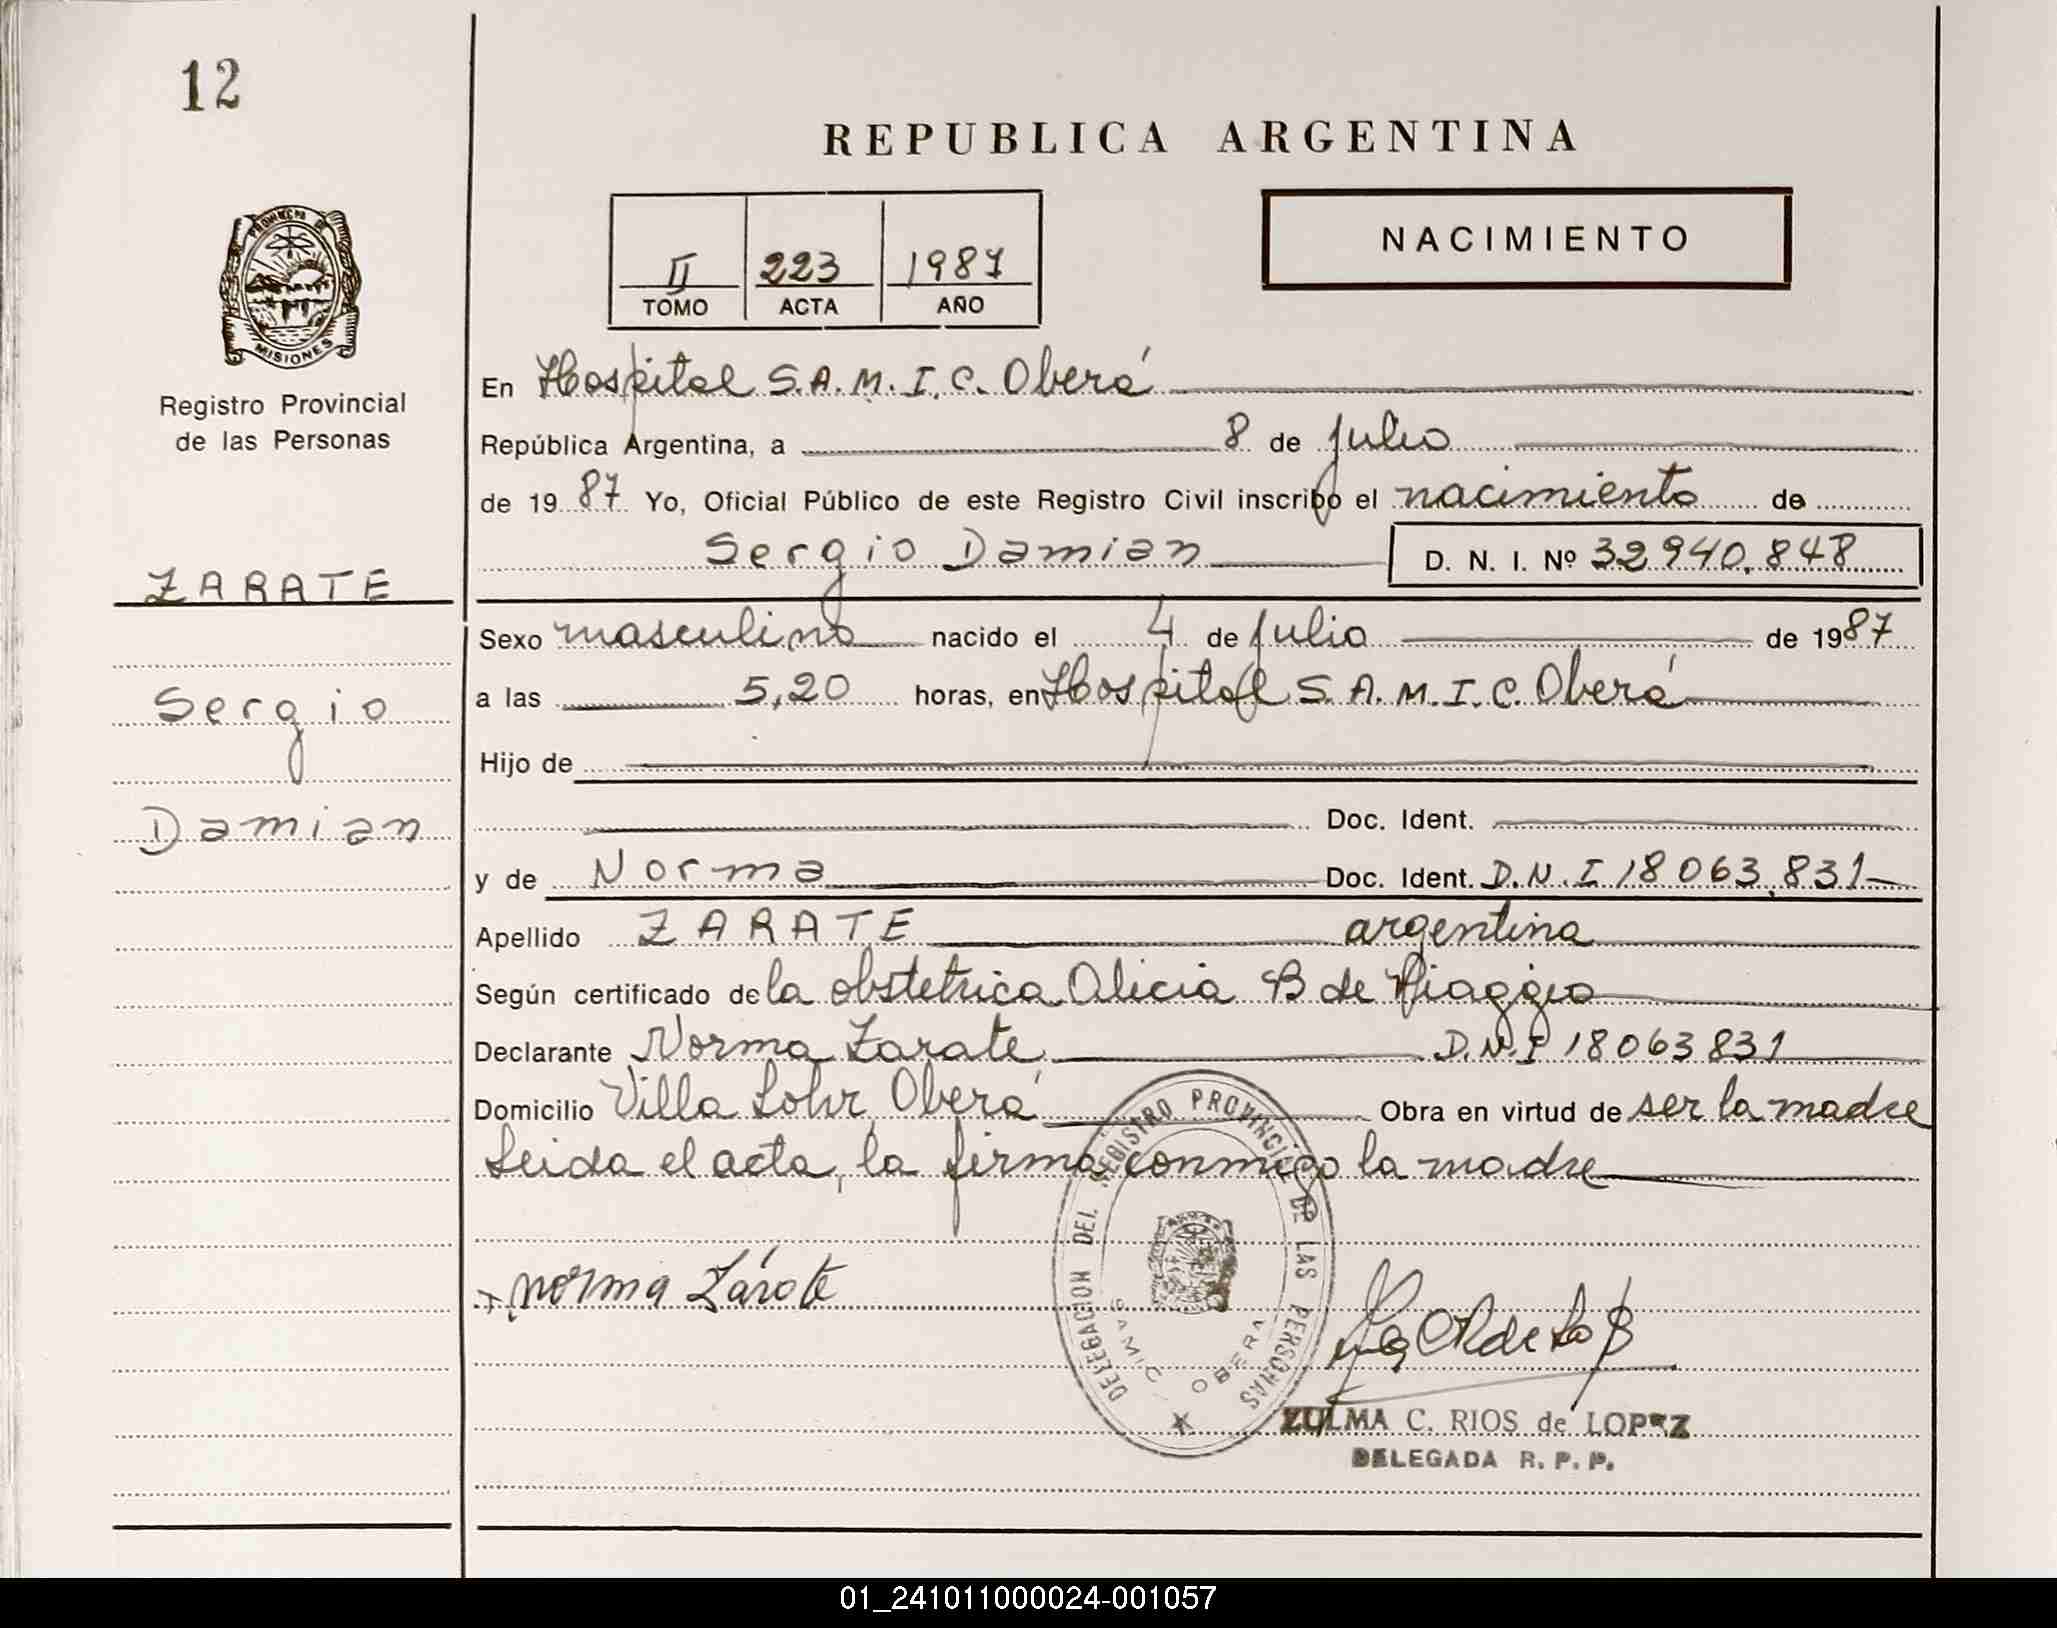 12
REPUBLICA ARGENTINA
PROVINCIA DE
MISIONES
Registro Provincial
de las Personas
II 223 1987
TOMO ACTA AÑO
NACIMIENTO
En Hospital S.A.M.I.C. Oberá
República Argentina, a 8 de julio
de 19 87 Yo, Oficial Público de este Registro Civil inscribo el nacimiento de
Sergio Damian D. N. I. Nº 32 940.848
ZARATE
Sergio
Damian
Sexo masculino nacido el 4 de julio de 1987
a las 5,20 horas, en Hospital S.A.M.I.C. Oberá
Hijo de
Doc. Ident.
y de Norma Doc. Ident. D.N.I 18 063.831
Apellido ZARATE argentina
Según certificado de la obstetrica Alicia B de
Declarante Norma Zarate D.N.I 18063831
Domicilio Villa Lohr Oberá Obra en virtud de ser la madre
Leida el acta, la firma conmigo la madre
Norma Zárate
DELEGACION DEL REGISTRO PROVINCIAL DE LAS PERSONAS
SAMIC - OBERA
ZULMA C. RIOS de LOPEZ
DELEGADA R. P. P.
01_241011000024-001057